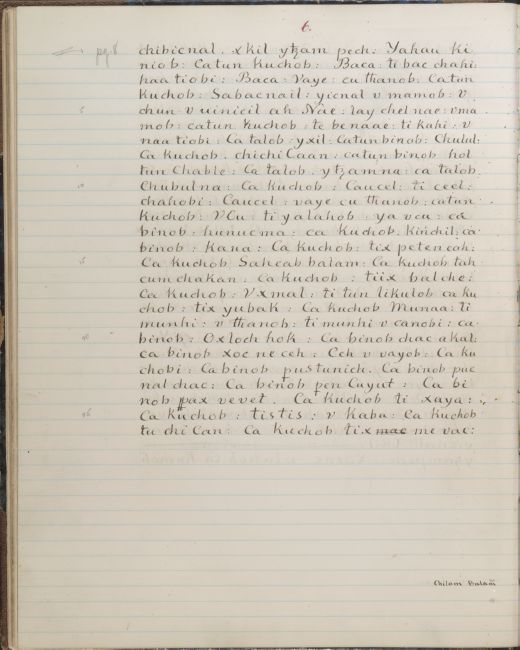 6.
pg. 8 chibicnal. xkil ytzam pech: Yahau ki
niob: Catun Kuchob: Baca: ti bac chahi:
haa tiobi: Baca: Vaye: cu thanob: Catun
Kuchob: Sabacnail: yicnal v mamob: v
5 chun v uinicil ah Nae: lay chel nae: v ma
mob: catun kuchob: te benaae: ti kuhi: v
naa tiobi: Ca talob: yxil: Catun binob: Chulul:
Ca Kuchob. chichi Caan: catun binob hol
tun Chable: Ca talob. ytzamna: ca talob.
10 Chubulna: Ca Kuchob: Caucel: ti ceel:
chahobi: Caucel: vaye cu thanob: catun
Kuchob: V Cu: ti yalahob: ya v cu: ca
binob: hunucma: ca Kuchob. Kinchil: ca
binob: Kana: Ca Kuchob: tix peten cah:
15 Ca Kuchob Sahcab balam: Ca kuchob tah
cum chakan: Ca kuchob: tiix balche:
Ca Kuchob: Vxmal: ti tun likulob ca ku
chob: tix yubak: Ca kuchob Munaa: ti
munhi: v thanob: ti munhi v canobi: ca
20 binob: Oxloch hok: Ca binob chac akal:
ca binob xoc ne ceh: Ceh v vayob: Ca ku
chobi: Ca binob pustunich. Ca binob puc
nal chac: Ca binob pen Cuyut: Ca bi
nob pax vevet. Ca kuchob ti xaya:
25 Ca Kuchob: tistis: v Kaba: Ca Kuchob
tu chi Can: Ca Kuchob tix mac me vac:
Chilam Balam